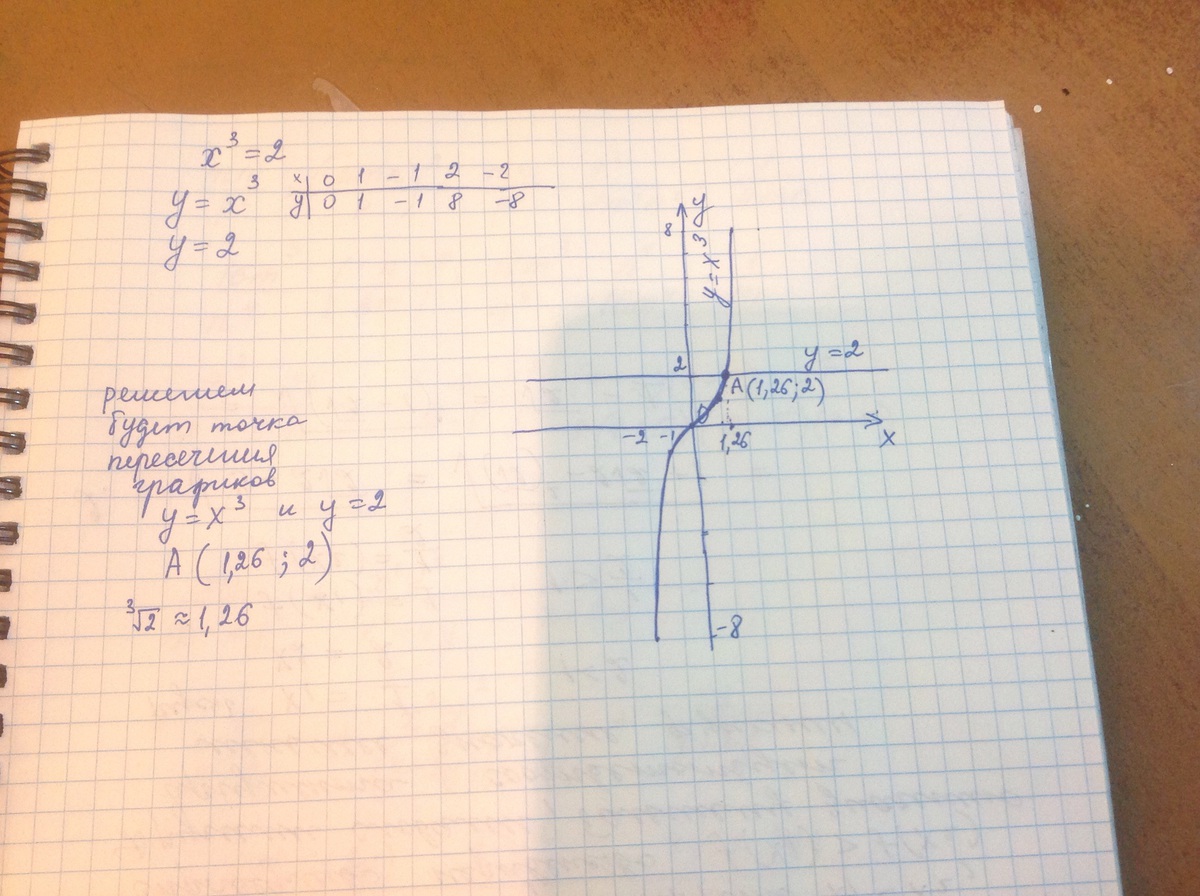 x³ = 2
y = x³
x | 0 1 -1 2 -2
y | 0 1 -1 8 -8
y = 2
решением
будет точка
пересечения
графиков
y = x³ и y = 2
A (1,26 ; 2)
³√2 ≈ 1,26
y
8
y = x³
2
y = 2
A (1,26 ; 2)
-2 -1
0
1,26
x
-8